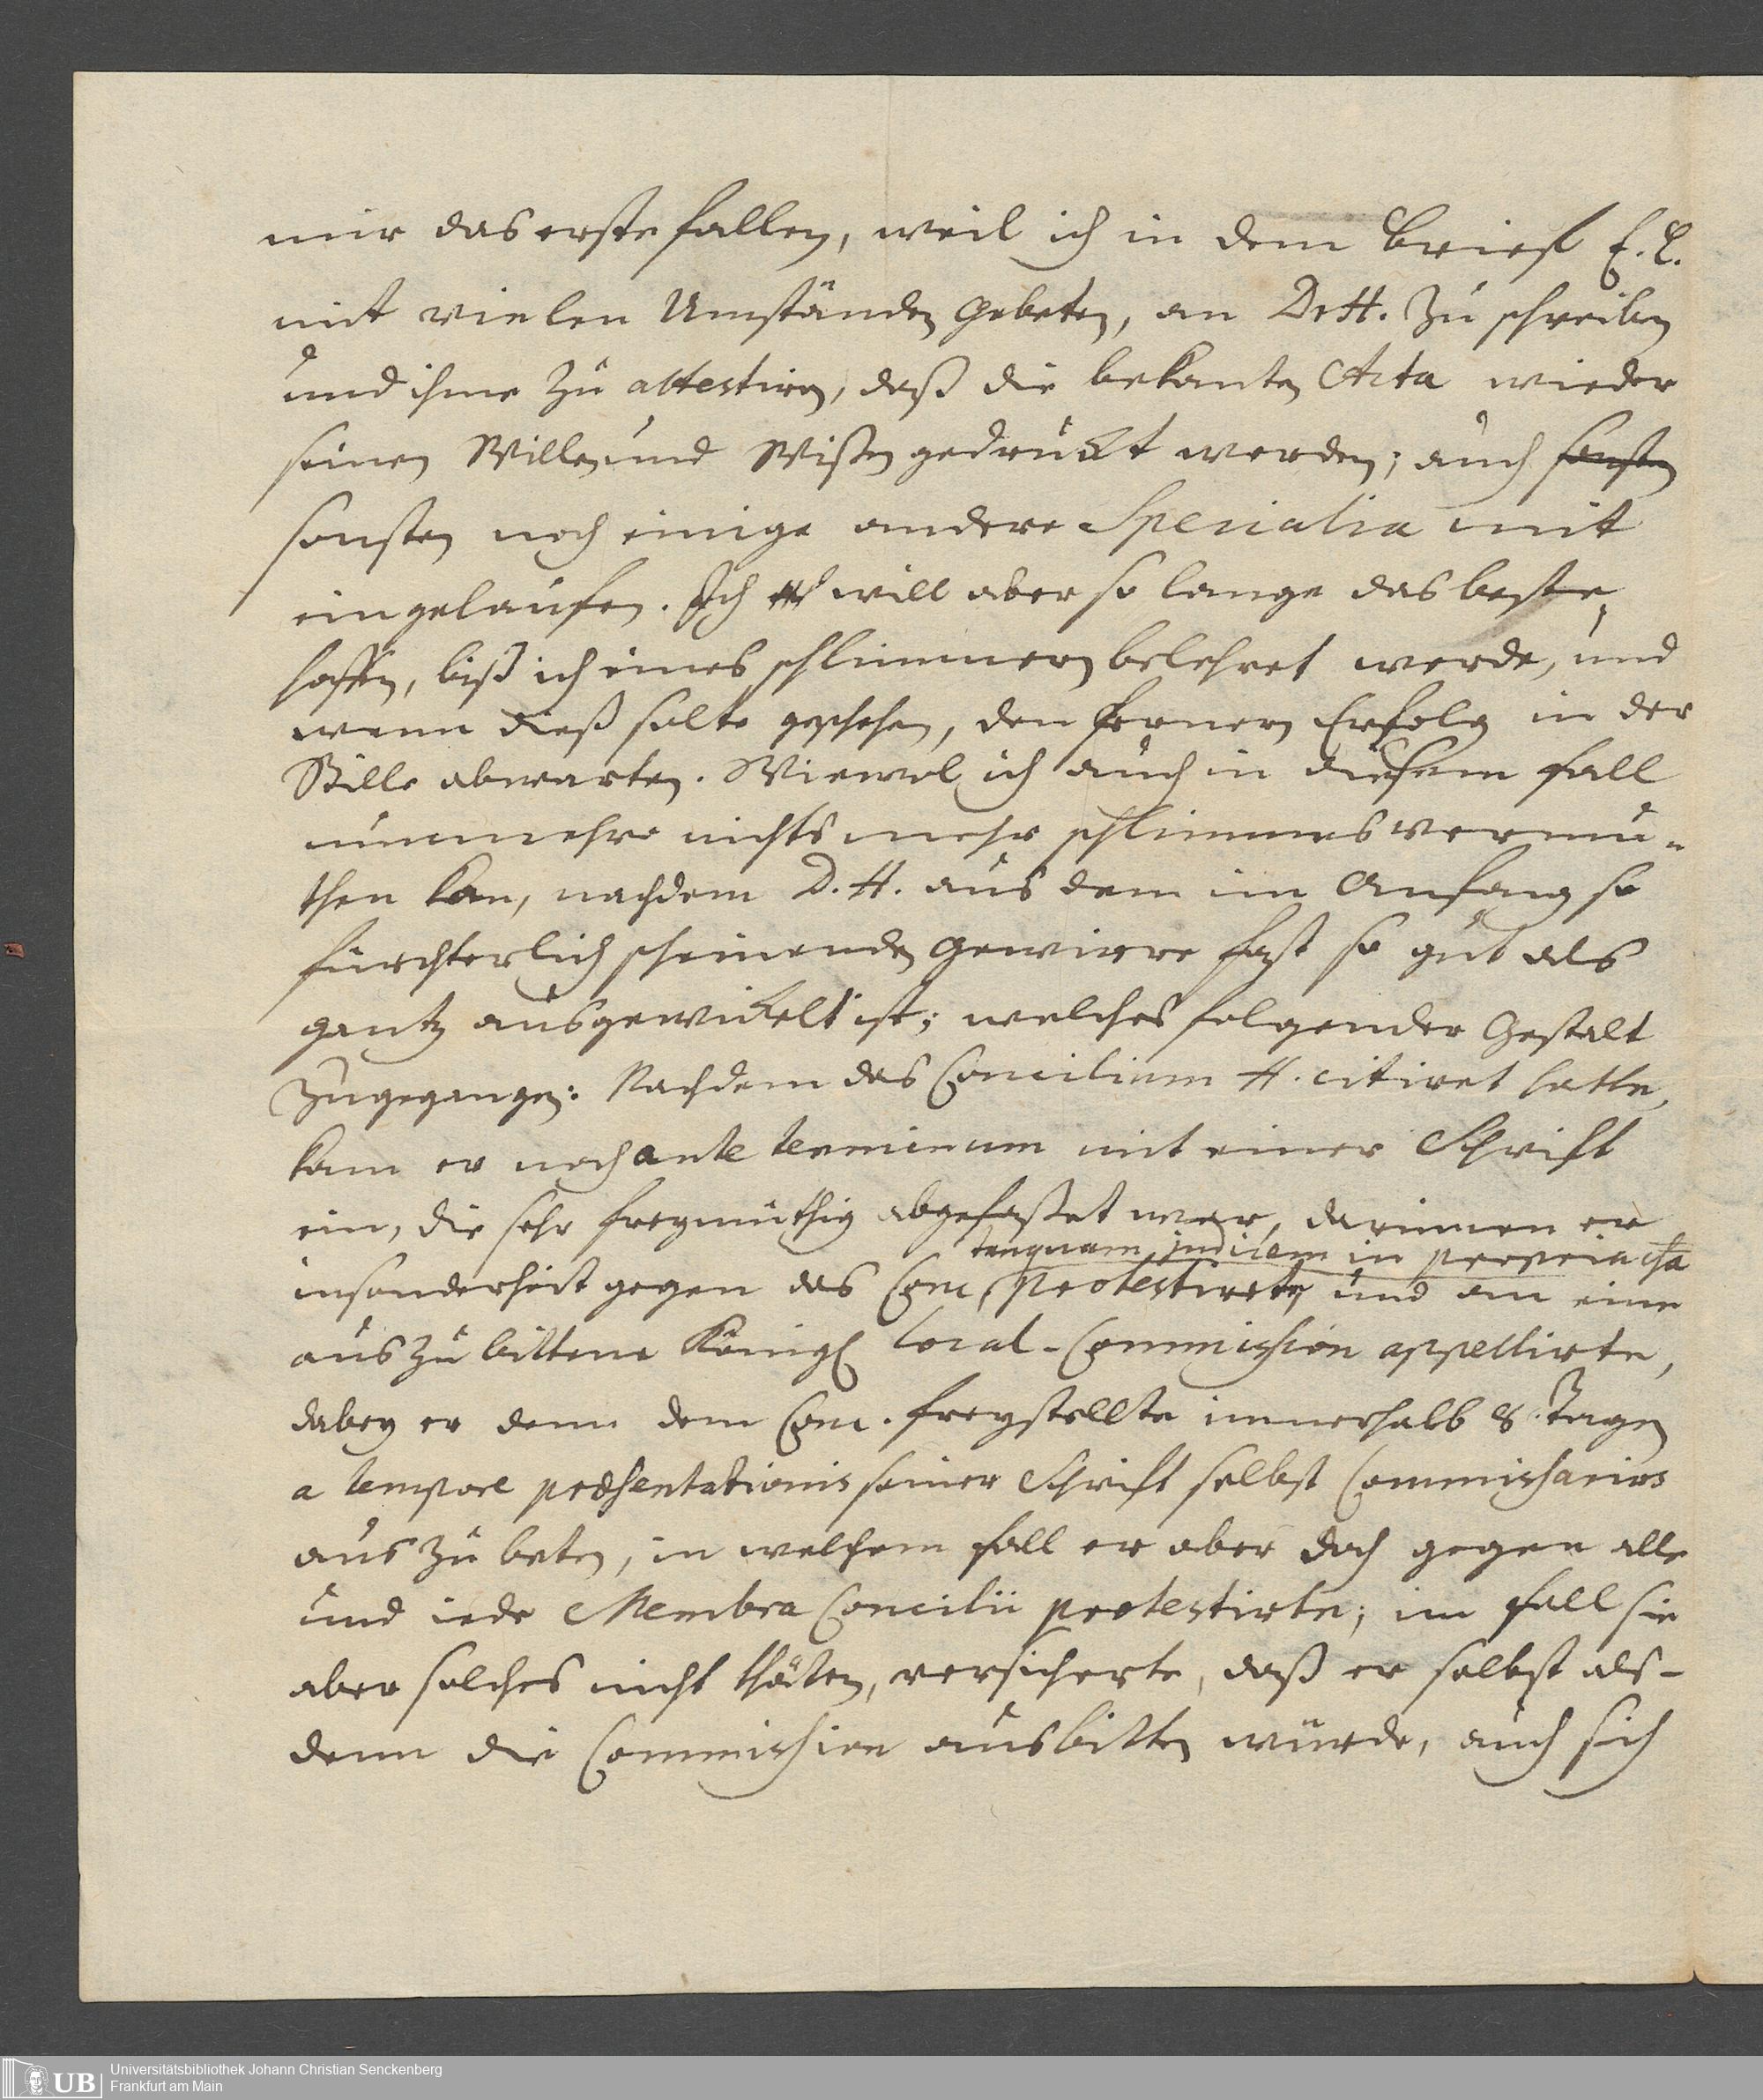 mir das erste fallen, weil ich in dem Brief E. E.
mit vielen Umständen gebeten, an Dr H. zu schreiben
und ihme zu attestiren, daß die bekanten Acta wieder
seinen Willen und Wißen gedruckt werden; auch sonsten
sonsten noch einige andere Specialia mit
eingelaufen. Ich will aber so lange das beste
hoffen, biß ich eines schlimmern belehret werde, und
wenn dieß solte geschehen, den fernern Erfolg in der
Stille abwarten. Wiewol ich auch in diesem fall
nunmehro nichts mehr schlimmes vermu-
then kan, nachdem D. H. aus dem im Anfang so
fürchterlich scheinenden Gewirre fast so gut als
gantz ausgewickelt ist; welches folgender Gestalt
zugegangen: Nachdem das Concilium H. citiret hatte,
kam er noch ante terminum mit einer Schrift
ein, die sehr freymüthig abgefaßet war, darinnen er
tanquam judicem in propria c̅sa
insonderheit gegen das Conc. protestirte, und an eine
auszubittene Königl Local-Commission appellirte,
dabey er denn dem Conc. freystellte innerhalb 8. Tagen
a tempore præsentationis seiner Schrift selbst Commissarios
auszubeten, in welchem fall er aber doch gegen alle
und iede Membra Concilii protestirte; im fall sie
aber solches nicht thäten, versicherte, daß er selbst als-
denn die Commission ausbitten würde, auch sich
UB
Universitätsbibliothek Johann Christian Senckenberg
Frankfurt am Main